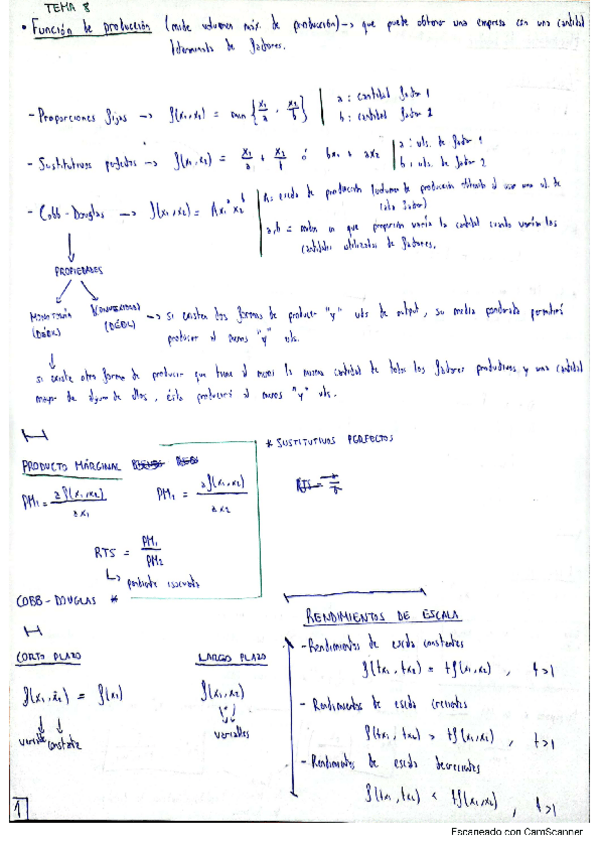 TEMA 8
• Función de producción (mide volumen máx. de producción) → que puede obtener una empresa con una cantidad
determinada de factores.
- Proporciones fijas → f(x₁,x₂) = min {x₁/a , x₂/b} | a: cantidad factor 1
b: cantidad factor 2
- Sustitutivos perfectos → f(x₁,x₂) = x₁/a + x₂/b ó bx₁ + ax₂ | a: uds. de factor 1
b: uds. de factor 2
- Cobb-Douglas → f(x₁,x₂) = Ax₁ᵃx₂ᵇ | A = escala de producción (volumen de producción obtenido al usar una ud. de
cada factor)
a,b = miden en que proporción varía la cantidad cuando varían las
cantidades utilizadas de factores.
PROPIEDADES
MONOTONÍA
(DÉBIL)
CONVEXIDAD
(DÉBIL)
→ si existen dos formas de producir "y" uds de output, su media ponderada permitirá
producir al menos "y" uds.
si existe otra forma de producir que tiene al menos la misma cantidad de todos los factores productivos y una cantidad
mayor de alguno de ellos, ésta producirá al menos "y" uds.
PRODUCTO MÁRGINAL
* SUSTITUTIVOS PERFECTOS
PM₁ = ∂f(x₁,x₂)/∂x₁
PM₁ = ∂f(x₁,x₂)/∂x₂
RTS =
RTS = PM₁/PM₂
↳ pendiente isocuanta
COBB-DOUGLAS *
RENDIMIENTOS DE ESCALA
CORTO PLAZO
LARGO PLAZO
f(x₁,x̄₂) = f(x₁)
variable constante
f(x₁,x₂)
variables
- Rendimientos de escala constantes
f(tx₁,tx₂) = tf(x₁,x₂), t>1
- Rendimientos de escala crecientes
f(tx₁,tx₂) > tf(x₁,x₂), t>1
- Rendimientos de escala decrecientes
f(tx₁,tx₂) < tf(x₁,x₂), t>1
1
Escaneado con CamScanner